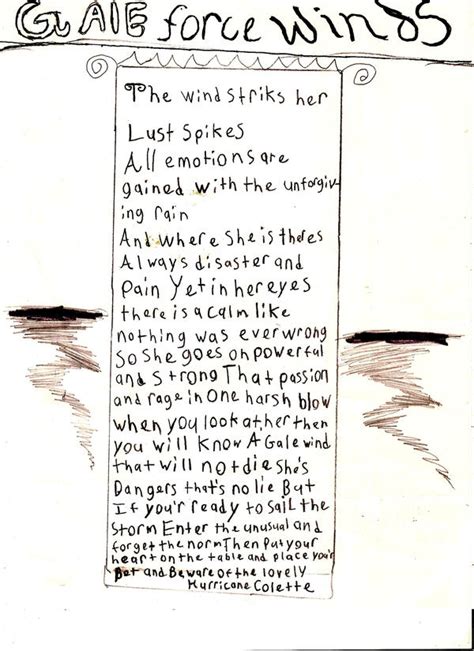 GAlE force winds
The wind striks her
Lust Spikes
All emotions are
gained with the unforgiv
ing rain
And where she is theres
Always disaster and
pain Yet in her eyes
there is a calm like
nothing was ever wrong
So she goes on powerful
and strong That passion
and rage in One harsh blow
when you look at her then
you will know A Gale wind
that will not die she's
Dangers that's no lie But
If you'r ready to sail the
Storm Enter the unusual and
forget the norm Then put your
heart on the table and place your
Bet and Beware of the lovely
Hurricane Colette